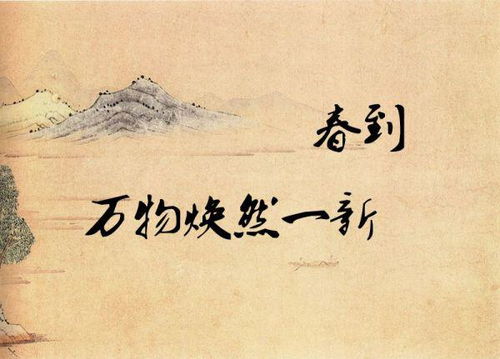 春到
万物焕然一新